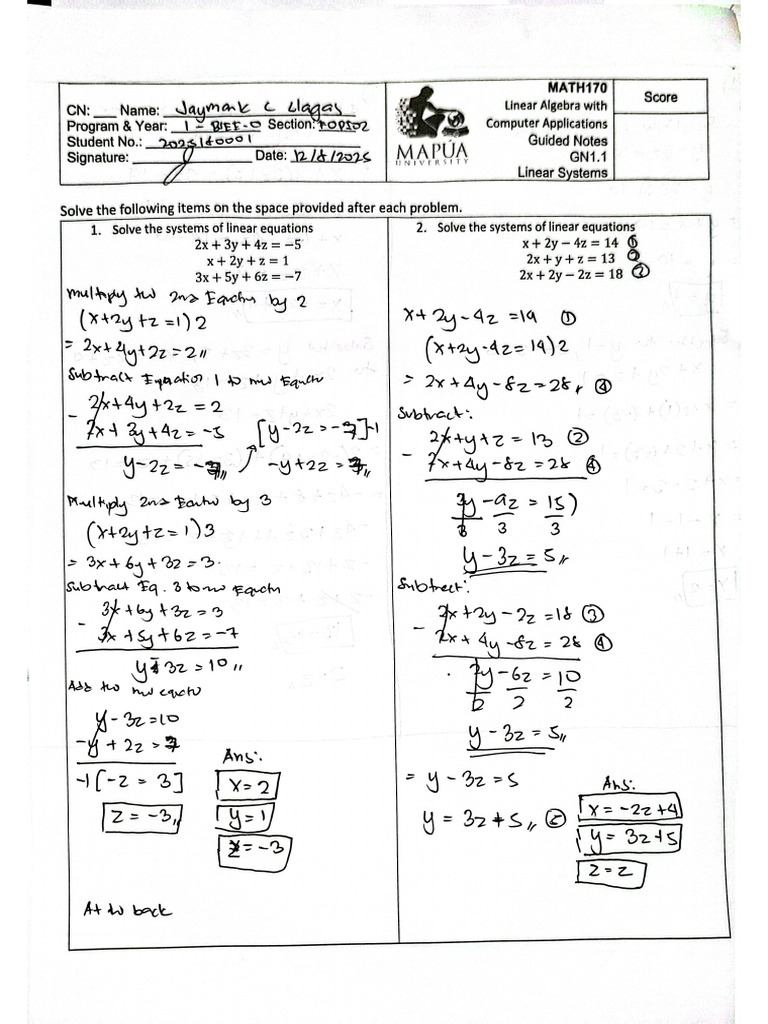 CN: ___ Name: Jaymark C Llagas
Program & Year: 1 - BIEE-O Section: FOPI02
Student No.: 2025180001
Signature:
Date: 12/8/2025
MAPÚA
UNIVERSITY
MATH170
Linear Algebra with
Computer Applications
Guided Notes
GN1.1
Linear Systems
Score
Solve the following items on the space provided after each problem.
1. Solve the systems of linear equations
2x + 3y + 4z = −5
x + 2y + z = 1
3x + 5y + 6z = −7
Multiply the 2nd Equation by 2
(x+2y+z=1)2
= 2x+4y+2z=2,,
Subtract Equation 1 to new Equation
2x+4y+2z=2
- 2x+3y+4z=-5
y-2z=-7,,
[y-2z=-7]-1
-y+2z=7,,
Multiply 2nd Equation by 3
(x+2y+z=1)3
= 3x+6y+3z=3
Subtract Eq. 3 to new Equation
3x+6y+3z=3
- 3x+5y+6z=-7
y-3z=10,,
Add the new equation
y-3z=10
-y+2z=7
-1[-z=3]
z=-3,,
Ans:
x=2
y=1
z=-3
At the back
2. Solve the systems of linear equations
x + 2y − 4z = 14 ①
2x + y + z = 13 ②
2x + 2y − 2z = 18 ③
x+2y-4z=14 ①
(x+2y-4z=14)2
= 2x+4y-8z=28,, ④
Subtract:
2x+y+z=13 ②
- 2x+4y-8z=28 ④
3y-9z=15)
3 3 3
y-3z=5,,
Subtract:
2x+2y-2z=18 ③
- 2x+4y-8z=28 ④
2y-6z=10
2 2 2
y-3z=5,,
= y-3z=5
y=3z+5,, ⑤
Ans:
x=-2z+4
y=3z+5
z=z